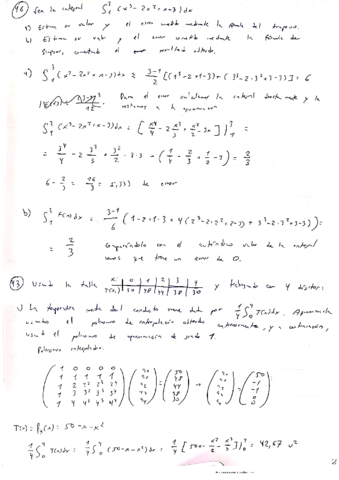 46) Sea la integral ∫₁³ (x³-2x²+x-3)dx
a) Estima su valor y el error cometido mediante la fórmula del trapecio.
b) Estima su valor y el error cometido mediante la fórmula de
Simpson, comentando el error resultado obtenido.
a) ∫₁³ (x³-2x²+x-3)dx ≈ (3-1)/2 [(1³-2+1-3) + (3³-2·3²+3-3)] = 6
Para el error calculamos la integral directamente y la
restamos a la aproximación
∫₁³ (x³-2x²+x-3)dx = [x⁴/4 - 2x³/3 + x²/2 - 3x]₁³ =
= 3⁴/4 - 2 3³/3 + 3²/2 - 3·3 - (1/4 - 2/3 + 1/2 - 3) = 2/3
6 - 2/3 = 16/3 = 5,333 de error
b) ∫₁³ f(x)dx ≈ (3-1)/6 (1-2+1-3 + 4(2³-2·2²+2-3) + 3³-2·3²+3-3) =
= 2/3 Comparándolo con el auténtico valor de la integral
vemos que tiene un error de 0.
43) Usando la tabla x 0 1 2 3 4 y trabajando con 4 dígitos:
T(x) 50 48 44 38 30
a) La temperatura media del conducto viene dada por 1/4 ∫₀⁴ T(x)dx. Aproximarla
usando el polinomio de interpolación obtenido anteriormente, y a continuación,
usando el polinomio de aproximación de grado 1.
Polinomio interpolador.
1 0 0 0 0 a₀ 50 a₀ 50
1 1 1 1 1 a₁ 48 a₁ -1
1 2 2² 2³ 2⁴ a₂ = 44 → a₂ = -1
1 3 3² 3³ 3⁴ a₃ 38 a₃ 0
1 4 4² 4³ 4⁴ a₄ 30 a₄ 0
T(x) ≈ P₄(x) = 50-x-x²
1/4 ∫₀⁴ T(x)dx ≈ 1/4 ∫₀⁴ (50-x-x²)dx = 1/4 [50x - x²/2 - x³/3]₀⁴ = 42,67
2